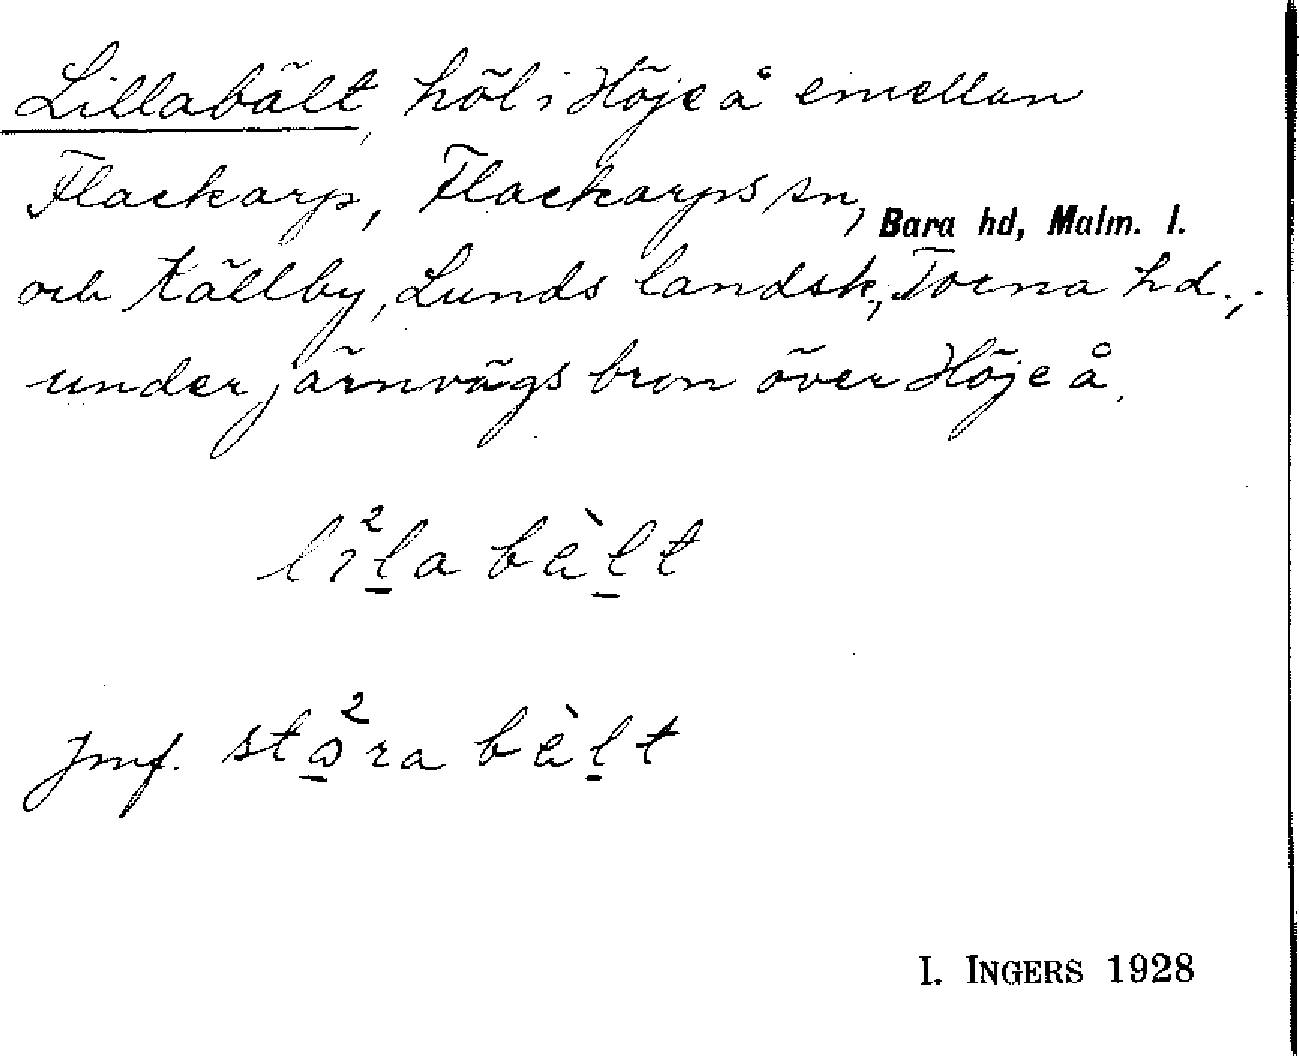 Lillabält, höl i Höje å emellan
Flackarp, Flackarps sn, Bara hd, Malm. l.
och Källby, Lunds landsk., Torna hd.,
under järnvägsbron över Höje å.
li²la bèlt
jmf. stɷ²ra bèlt
I. INGERS 1928